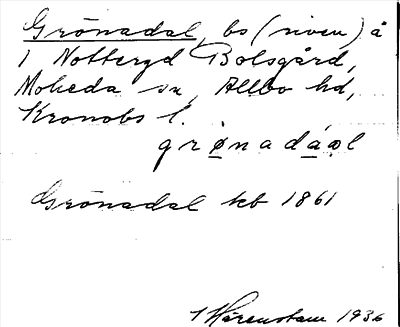 Grönadal, bs (riven) å
1 Notteryd Bolsgård,
Moheda sn, Allbo hd,
Kronobs l.
grønadáəl
Grönadal kb 1861
Härenstam 1936